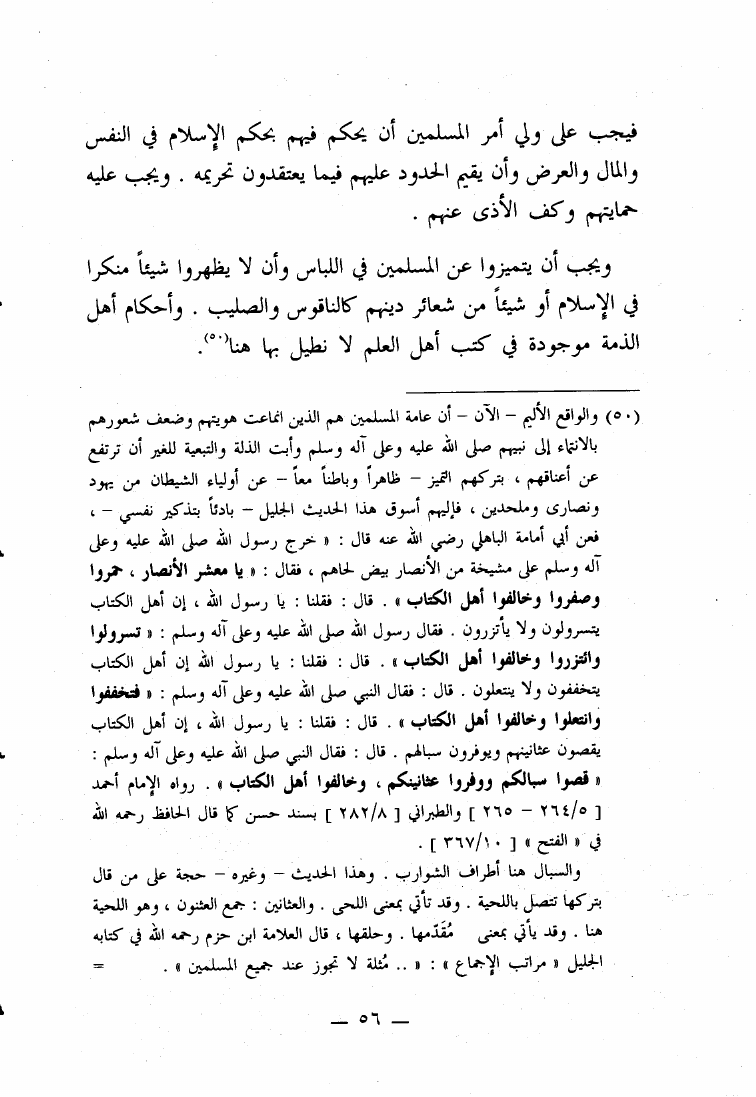 فيجب على ولي أمر المسلمين أن يحكم فيهم بحكم الإسلام في النفس
والمال والعرض وأن يقيم الحدود عليهم فيما يعتقدون تحريمه . ويجب عليه
حمايتهم وكف الأذى عنهم .
ويجب أن يتميزوا عن المسلمين في اللباس وأن لا يظهروا شيئاً منكرا
في الإسلام أو شيئاً من شعائر دينهم كالناقوس والصليب . وأحكام أهل
الذمة موجودة في كتب أهل العلم لا نطيل بها هنا(٥٠).
(٥٠) والواقع الأليم – الآن – أن عامة المسلمين هم الذين انماعت هويتهم وضعف شعورهم
بالانتماء إلى نبيهم صلى الله عليه وعلى آله وسلم وأبت الذلة والتبعية للغير أن ترتفع
عن أعناقهم ، بتركهم التميز – ظاهراً وباطناً معاً – عن أولياء الشيطان من يهود
ونصارى وملحدين ، فإليهم أسوق هذا الحديث الجليل – بادئاً بتذكير نفسي – ،
فعن أبي أمامة الباهلي رضي الله عنه قال : « خرج رسول الله صلى الله عليه وعلى
آله وسلم على مشيخة من الأنصار بيض لحاهم ، فقال : « يا معشر الأنصار ، حمروا
وصفروا وخالفوا أهل الكتاب » . قال : فقلنا : يا رسول الله ، إن أهل الكتاب
يتسرولون ولا يأتزرون . فقال رسول الله صلى الله عليه وعلى آله وسلم : « تسرولوا
وائتزروا وخالفوا أهل الكتاب » . قال : فقلنا : يا رسول الله إن أهل الكتاب
يتخففون ولا ينتعلون . قال : فقال النبي صلى الله عليه وعلى آله وسلم : « فتخففوا
وانتعلوا وخالفوا أهل الكتاب » . قال : فقلنا : يا رسول الله ، إن أهل الكتاب
يقصون عثانينهم ويوفرون سبالهم . قال : فقال النبي صلى الله عليه وعلى آله وسلم :
« قصوا سبالكم ووفروا عثانينكم ، وخالفوا أهل الكتاب » . رواه الإمام أحمد
[ ٥/٢٦٤ – ٢٦٥ ] والطبراني [ ٨/٢٨٢ ] بسند حسن كما قال الحافظ رحمه الله
في « الفتح » [ ١٠/٣٦٧ ] .
والسبال هنا أطراف الشوارب . وهذا الحديث – وغيره – حجة على من قال
بتركها تتصل باللحية . وقد تأتي بمعنى اللحى . والعثانين : جمع العثنون ، وهو اللحية
هنا . وقد يأتي بمعنى مُقَدّمها . وحلقها ، قال العلامة ابن حزم رحمه الله في كتابه
الجليل « مراتب الإجماع » : « .. مُثلة لا تجوز عند جميع المسلمين » . =
— ٥٦ —